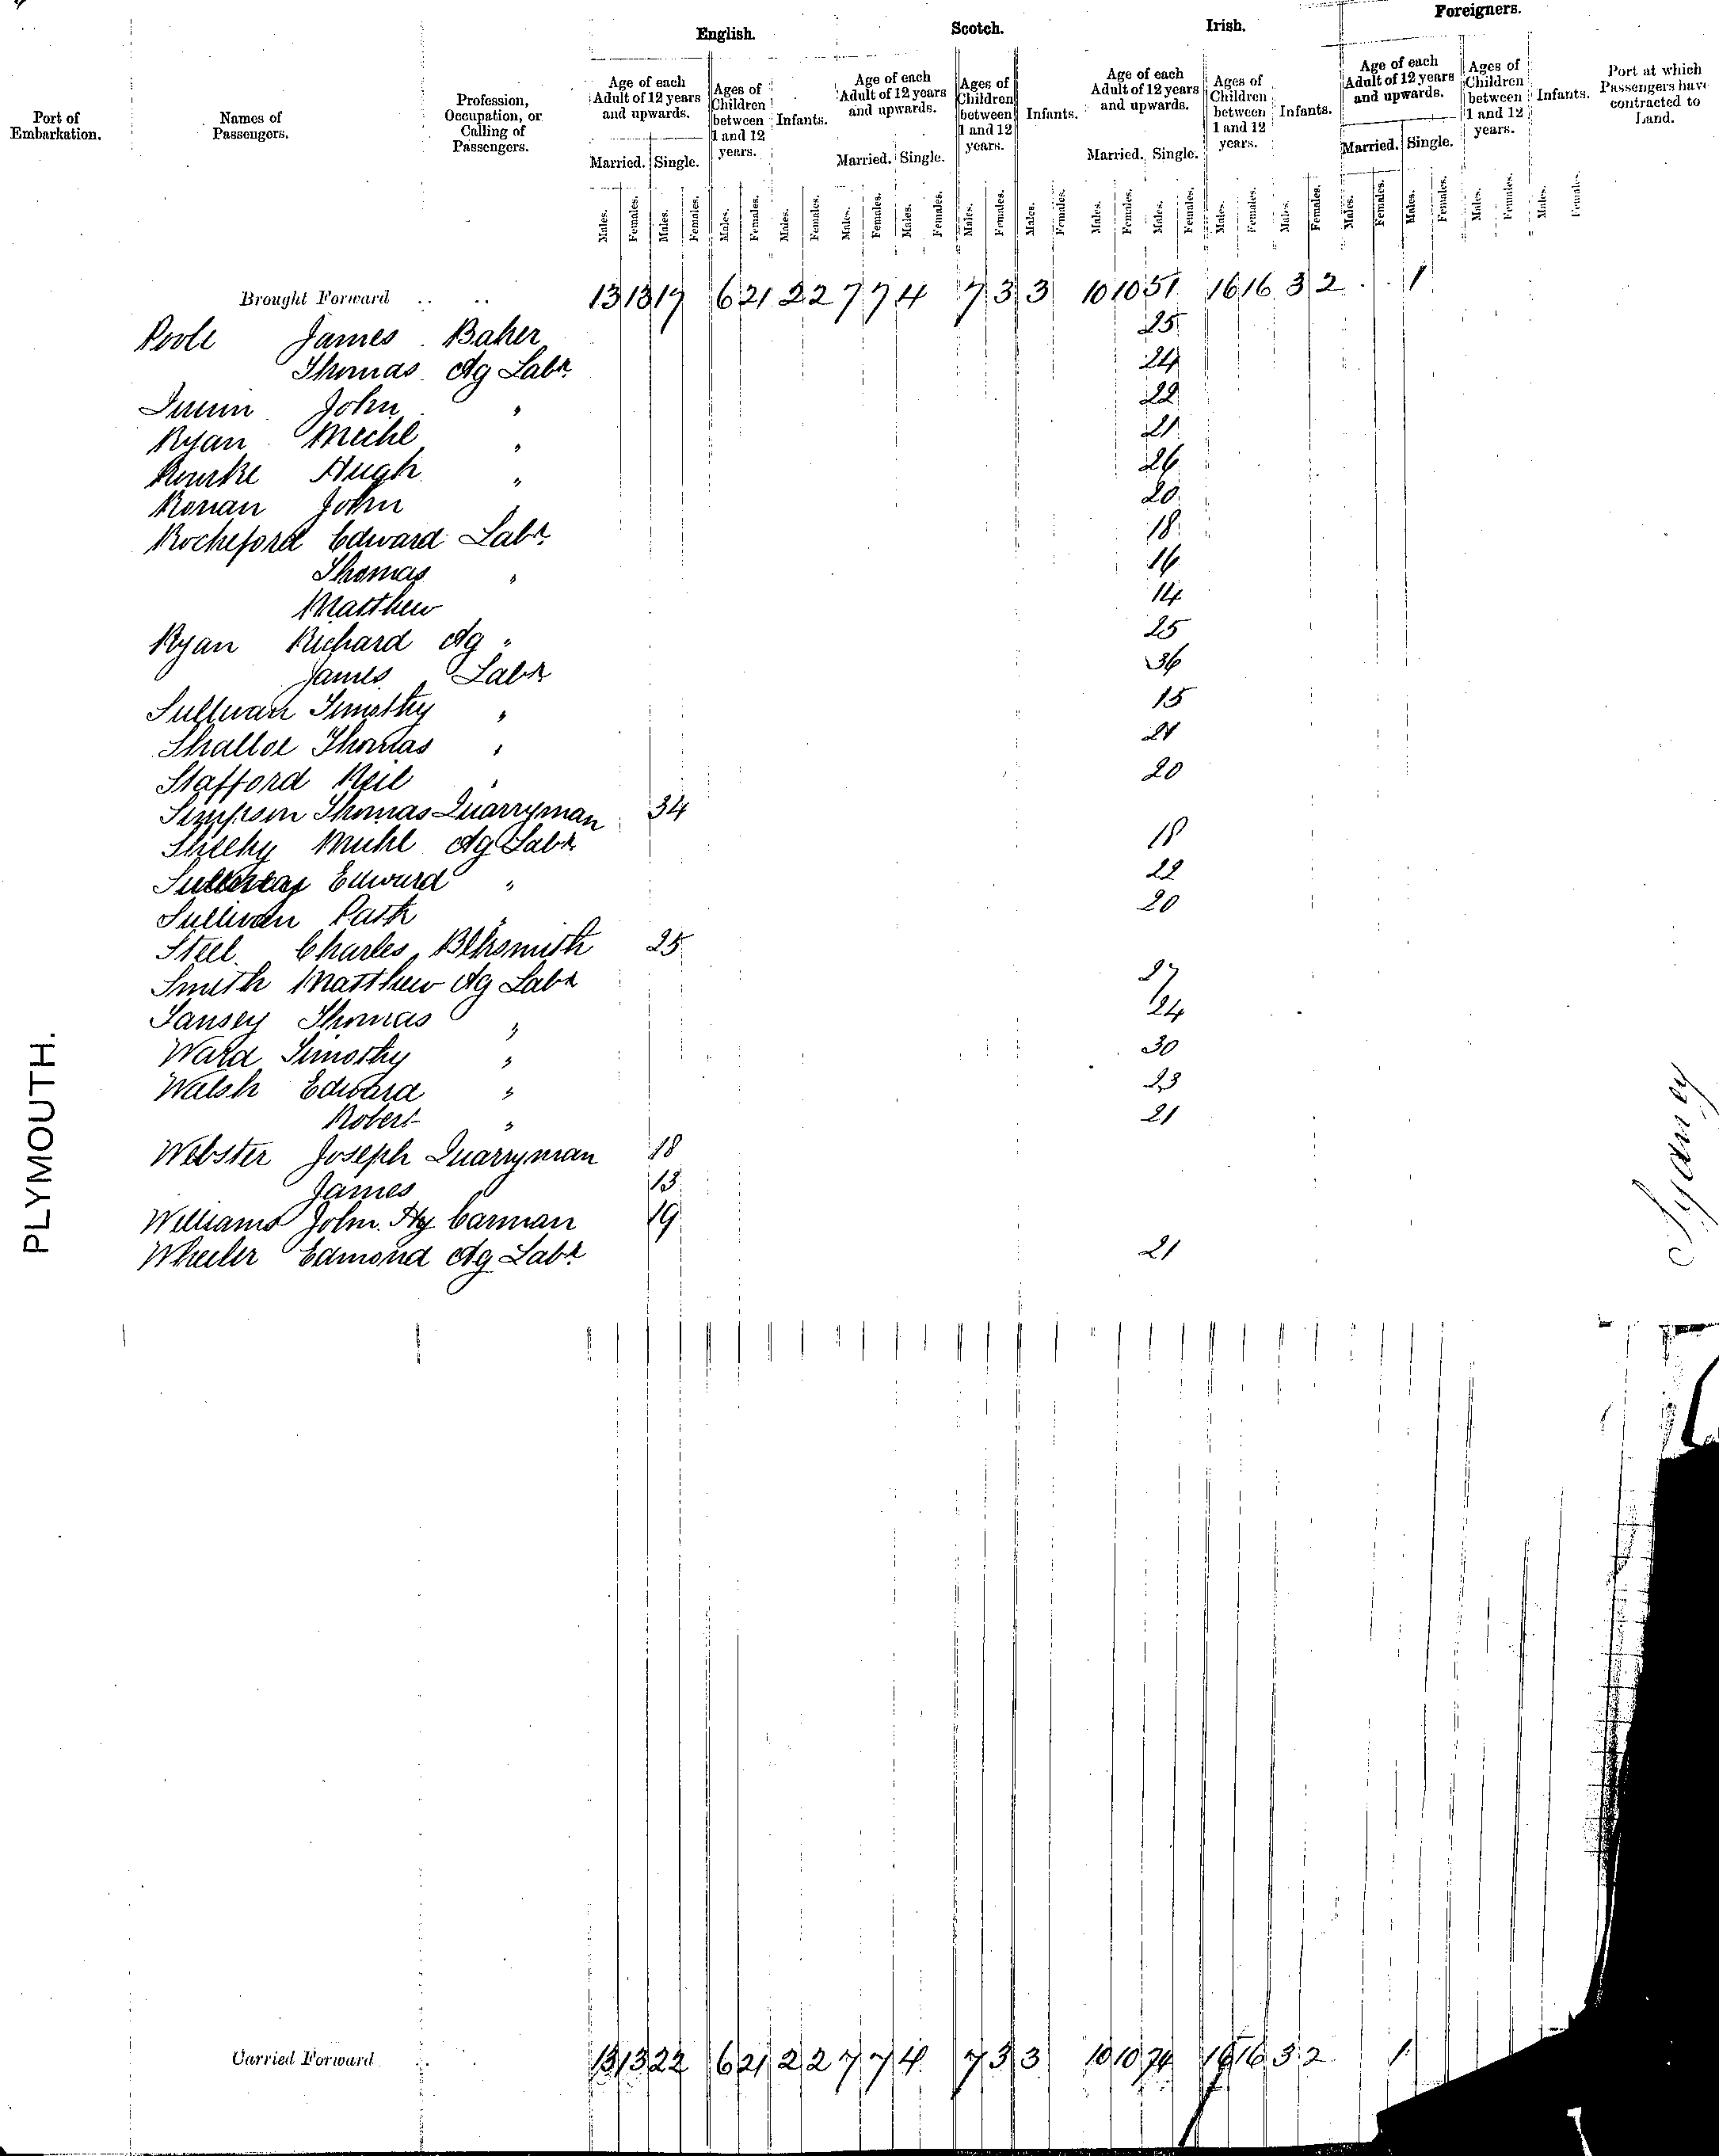 English. Scotch. Irish. Foreigners.
Port of Embarkation. Names of Passengers. Profession, Occupation, or Calling of Passengers. Age of each Adult of 12 years and upwards. Ages of Children between 1 and 12 years. Infants. Age of each Adult of 12 years and upwards. Ages of Children between 1 and 12 years. Infants. Age of each Adult of 12 years and upwards. Ages of Children between 1 and 12 years. Infants. Age of each Adult of 12 years and upwards. Ages of Children between 1 and 12 years. Infants. Port at which Passengers have contracted to Land.
Married. Single. Married. Single. Married. Single. Married. Single.
Males. Females. Males. Females. Males. Females. Males. Females. Males. Females. Males. Females. Males. Females. Males. Females. Males. Females. Males. Females. Males. Females. Males. Females. Males. Females. Males. Females. Males. Females. Males. Females.
Brought Forward .. .. 13 13 17 6 21 2 2 7 7 4 7 3 3 10 10 51 16 16 3 2 1
Poole James Baker 25
Thomas Ag Labr 24
John " 22
Ryan Michl " 21
Rourke Hugh " 26
Ronan John 20
Rocheford Edward Labr 18
Thomas " 16
Matthew 14
Ryan Richard Ag " 25
James Labr 36
Sullivan Timothy " 15
Shalloe Thomas " 21
Stafford Neil " 20
Simpson Thomas Quarryman 34
Sheehy Michl Ag Labr 18
Edward " 22
Sullivan Patk " 20
Steel Charles Blksmith 25
Smith Matthew Ag Labr 27
Tansey Thomas " 24
Ward Timothy " 30
Walsh Edward " 23
Robert " 21
Webster Joseph Quarryman 18
James 13
Williams John Hy Carman 19
Wheeler Edmond Ag Labr 21
PLYMOUTH.
Sydney
Carried Forward .. 13 13 22 6 21 2 2 7 7 4 7 3 3 10 10 74 16 16 3 2 1